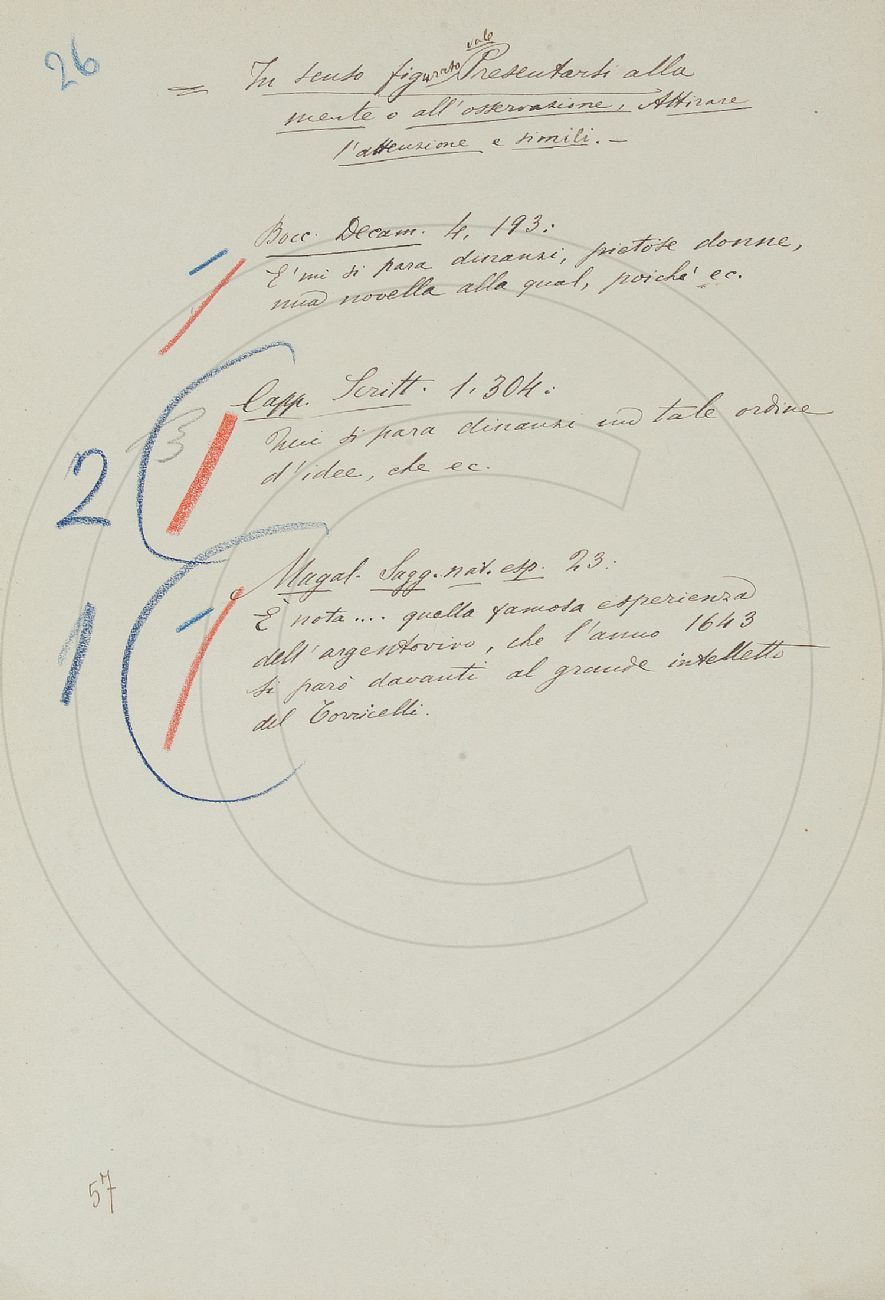 26
= In senso figurato vale Presentarsi alla
mente o all'osservazione, Attirare
l'attenzione e simili. —
Bocc. Decam. 4, 193:
E' mi si para dinanzi, pietose donne,
una novella alla qual, poichè ec.
Capp. Scritt. 1, 304:
Qui si para dinanzi un tale ordine
d'idee, che ec.
2
Magal. Sagg. nat. esp. 23:
È nota.... quella famosa esperienza
dell'argentovivo, che l'anno 1643
1
si parò davanti al grande intelletto
del Torricelli.
57